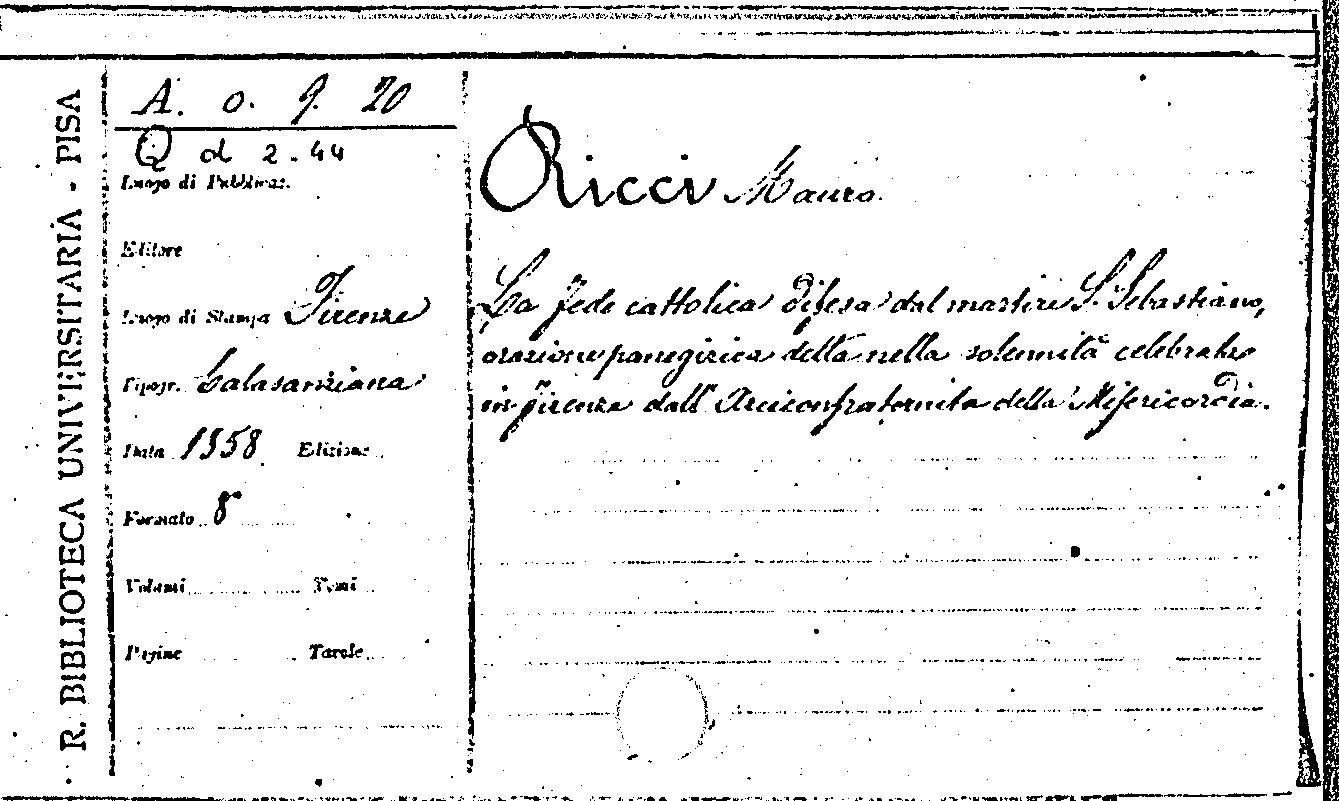 R. BIBLIOTECA UNIVERSITARIA - PISA
A. o. 9. 20
Q d 2.44
Luogo di Pubblicaz.
Editore
Luogo di Stampa Firenze
Tipogr. Calasanziana
Data 1858 Edizione
Formato 8°
Volumi Tomi
Pagine Tavole
Ricci Mauro.
La fede cattolica difesa dal martire S. Sebastiano,
orazione panegirica detta nella solennità celebrata
in Firenze dall'Arciconfraternita della Misericordia.